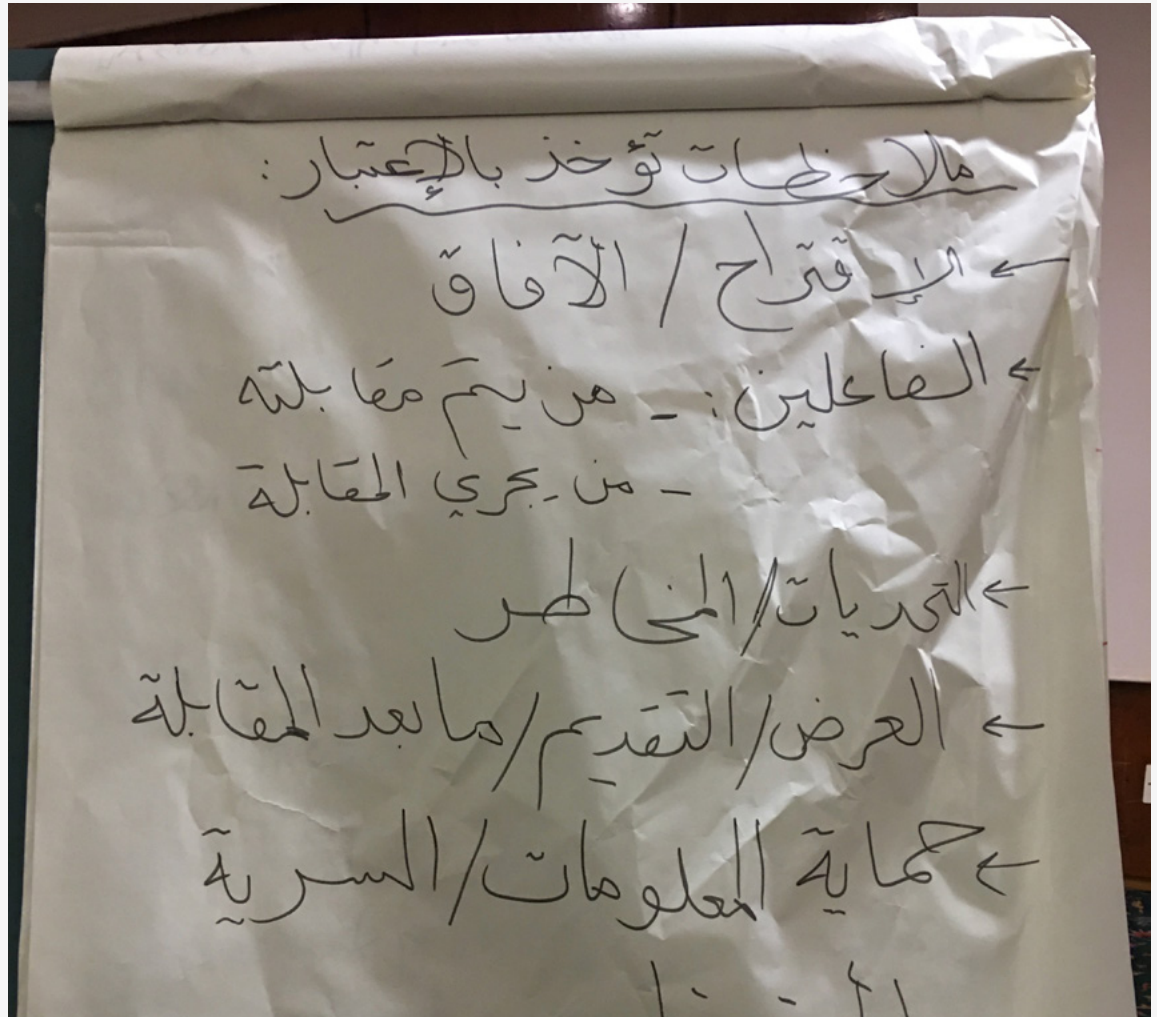 ملاحظات تؤخذ بالإعتبار:
← الإقتراح / الآفاق
← الفاعلين: - من يتم مقابلته
- من يجري المقابلة
← التحديات/المخاطر
← العرض/التقديم/ما بعد المقابلة
← حماية المعلومات/السرية